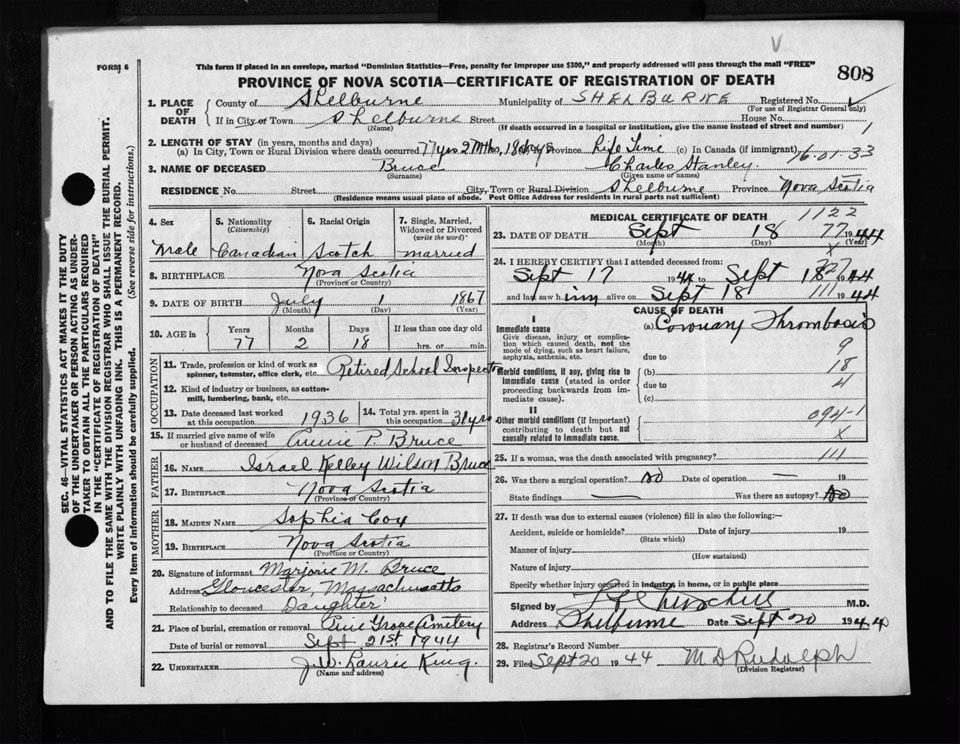 V
This form if placed in an envelope, marked "Dominion Statistics—Free, penalty for improper use $300," and properly addressed will pass through the mail "FREE"
FORM 6
PROVINCE OF NOVA SCOTIA—CERTIFICATE OF REGISTRATION OF DEATH
808
1. PLACE OF DEATH
County of Shelburne Municipality of SHELBURNE Registered No.
(For use of Registrar General only)
If in City or Town Shelburne Street House No.
(Name) (If death occurred in a hospital or institution, give the name instead of street and number) 1
2. LENGTH OF STAY (in years, months and days)
(a) In City, Town or Rural Division where death occurred 77 yrs 2 Mths, 18 days Province Life Time (c) In Canada (if immigrant)
16.01.33
3. NAME OF DECEASED Bruce Charles Stanley.
(Surname) (Given name or names)
RESIDENCE No. Street City, Town or Rural Division Shelburne Province Nova Scotia
(Residence means usual place of abode. Post Office Address for residents in rural parts not sufficient)
4. Sex Male
5. Nationality (Citizenship) Canadian
6. Racial Origin Scotch
7. Single, Married, Widowed or Divorced (write the word) married
8. BIRTHPLACE Nova Scotia
(Province or Country)
9. DATE OF BIRTH July 1 1867
(Month) (Day) (Year)
10. AGE in Years Months Days If less than one day old
77 2 18 hrs. or min.
OCCUPATION
11. Trade, profession or kind of work as spinner, teamster, office clerk, etc. Retired School Inspector
12. Kind of industry or business, as cotton-mill, lumbering, bank, etc.
13. Date deceased last worked at this occupation 1936
14. Total yrs. spent in this occupation 31 yrs
15. If married give name of wife or husband of deceased Annie P. Bruce
FATHER
16. NAME Israel Kelley Wilson Bruce
17. BIRTHPLACE Nova Scotia
(Province or Country)
MOTHER
18. MAIDEN NAME Sophia Coy
19. BIRTHPLACE Nova Scotia
(Province or Country)
20. Signature of informant Marjorie M. Bruce
Address Gloucester, Massachusetts
Relationship to deceased Daughter
21. Place of burial, cremation or removal Pine Grove Cemetery
Date of burial or removal Sept 21st 1944
22. UNDERTAKER J.W. Laurie King.
(Name and address)
MEDICAL CERTIFICATE OF DEATH 1122
23. DATE OF DEATH Sept 18 77 1944
(Month) (Day) (Year)
X
24. I HEREBY CERTIFY that I attended deceased from:
727
Sept 17 1944 to Sept 18 1944
and last saw him alive on Sept 18 111 1944
CAUSE OF DEATH
I
Immediate cause
Give disease, injury or complication which caused death, not the mode of dying, such as heart failure, asphyxia, asthenia, etc.
(a) Coronary Thrombosis
9
due to
18
Morbid conditions, if any, giving rise to Immediate cause (stated in order proceeding backwards from immediate cause).
(b)
due to 4
(c)
II
Other morbid conditions (if important) contributing to death but not causally related to immediate cause.
094-1
X
25. If a woman, was the death associated with pregnancy? 111
26. Was there a surgical operation? No Date of operation — 19
State findings — Was there an autopsy? No
27. If death was due to external causes (violence) fill in also the following:—
Accident, suicide or homicide? Date of injury 19
(State which)
Manner of injury
(How sustained)
Nature of injury
Specify whether injury occurred in industry, in home, or in public place
Signed by M.D.
Address Shelburne Date Sept 20 1944
28. Registrar's Record Number
29. Filed Sept 20 1944 M D Rudolph
(Division Registrar)
SEC. 46—VITAL STATISTICS ACT MAKES IT THE DUTY OF THE UNDERTAKER OR PERSON ACTING AS UNDERTAKER TO OBTAIN ALL THE PARTICULARS REQUIRED IN THE "CERTIFICATE OF REGISTRATION OF DEATH"
AND TO FILE THE SAME WITH THE DIVISION REGISTRAR WHO SHALL ISSUE THE BURIAL PERMIT.
WRITE PLAINLY WITH UNFADING INK. THIS IS A PERMANENT RECORD.
Every item of information should be carefully supplied. (See reverse side for instructions.)